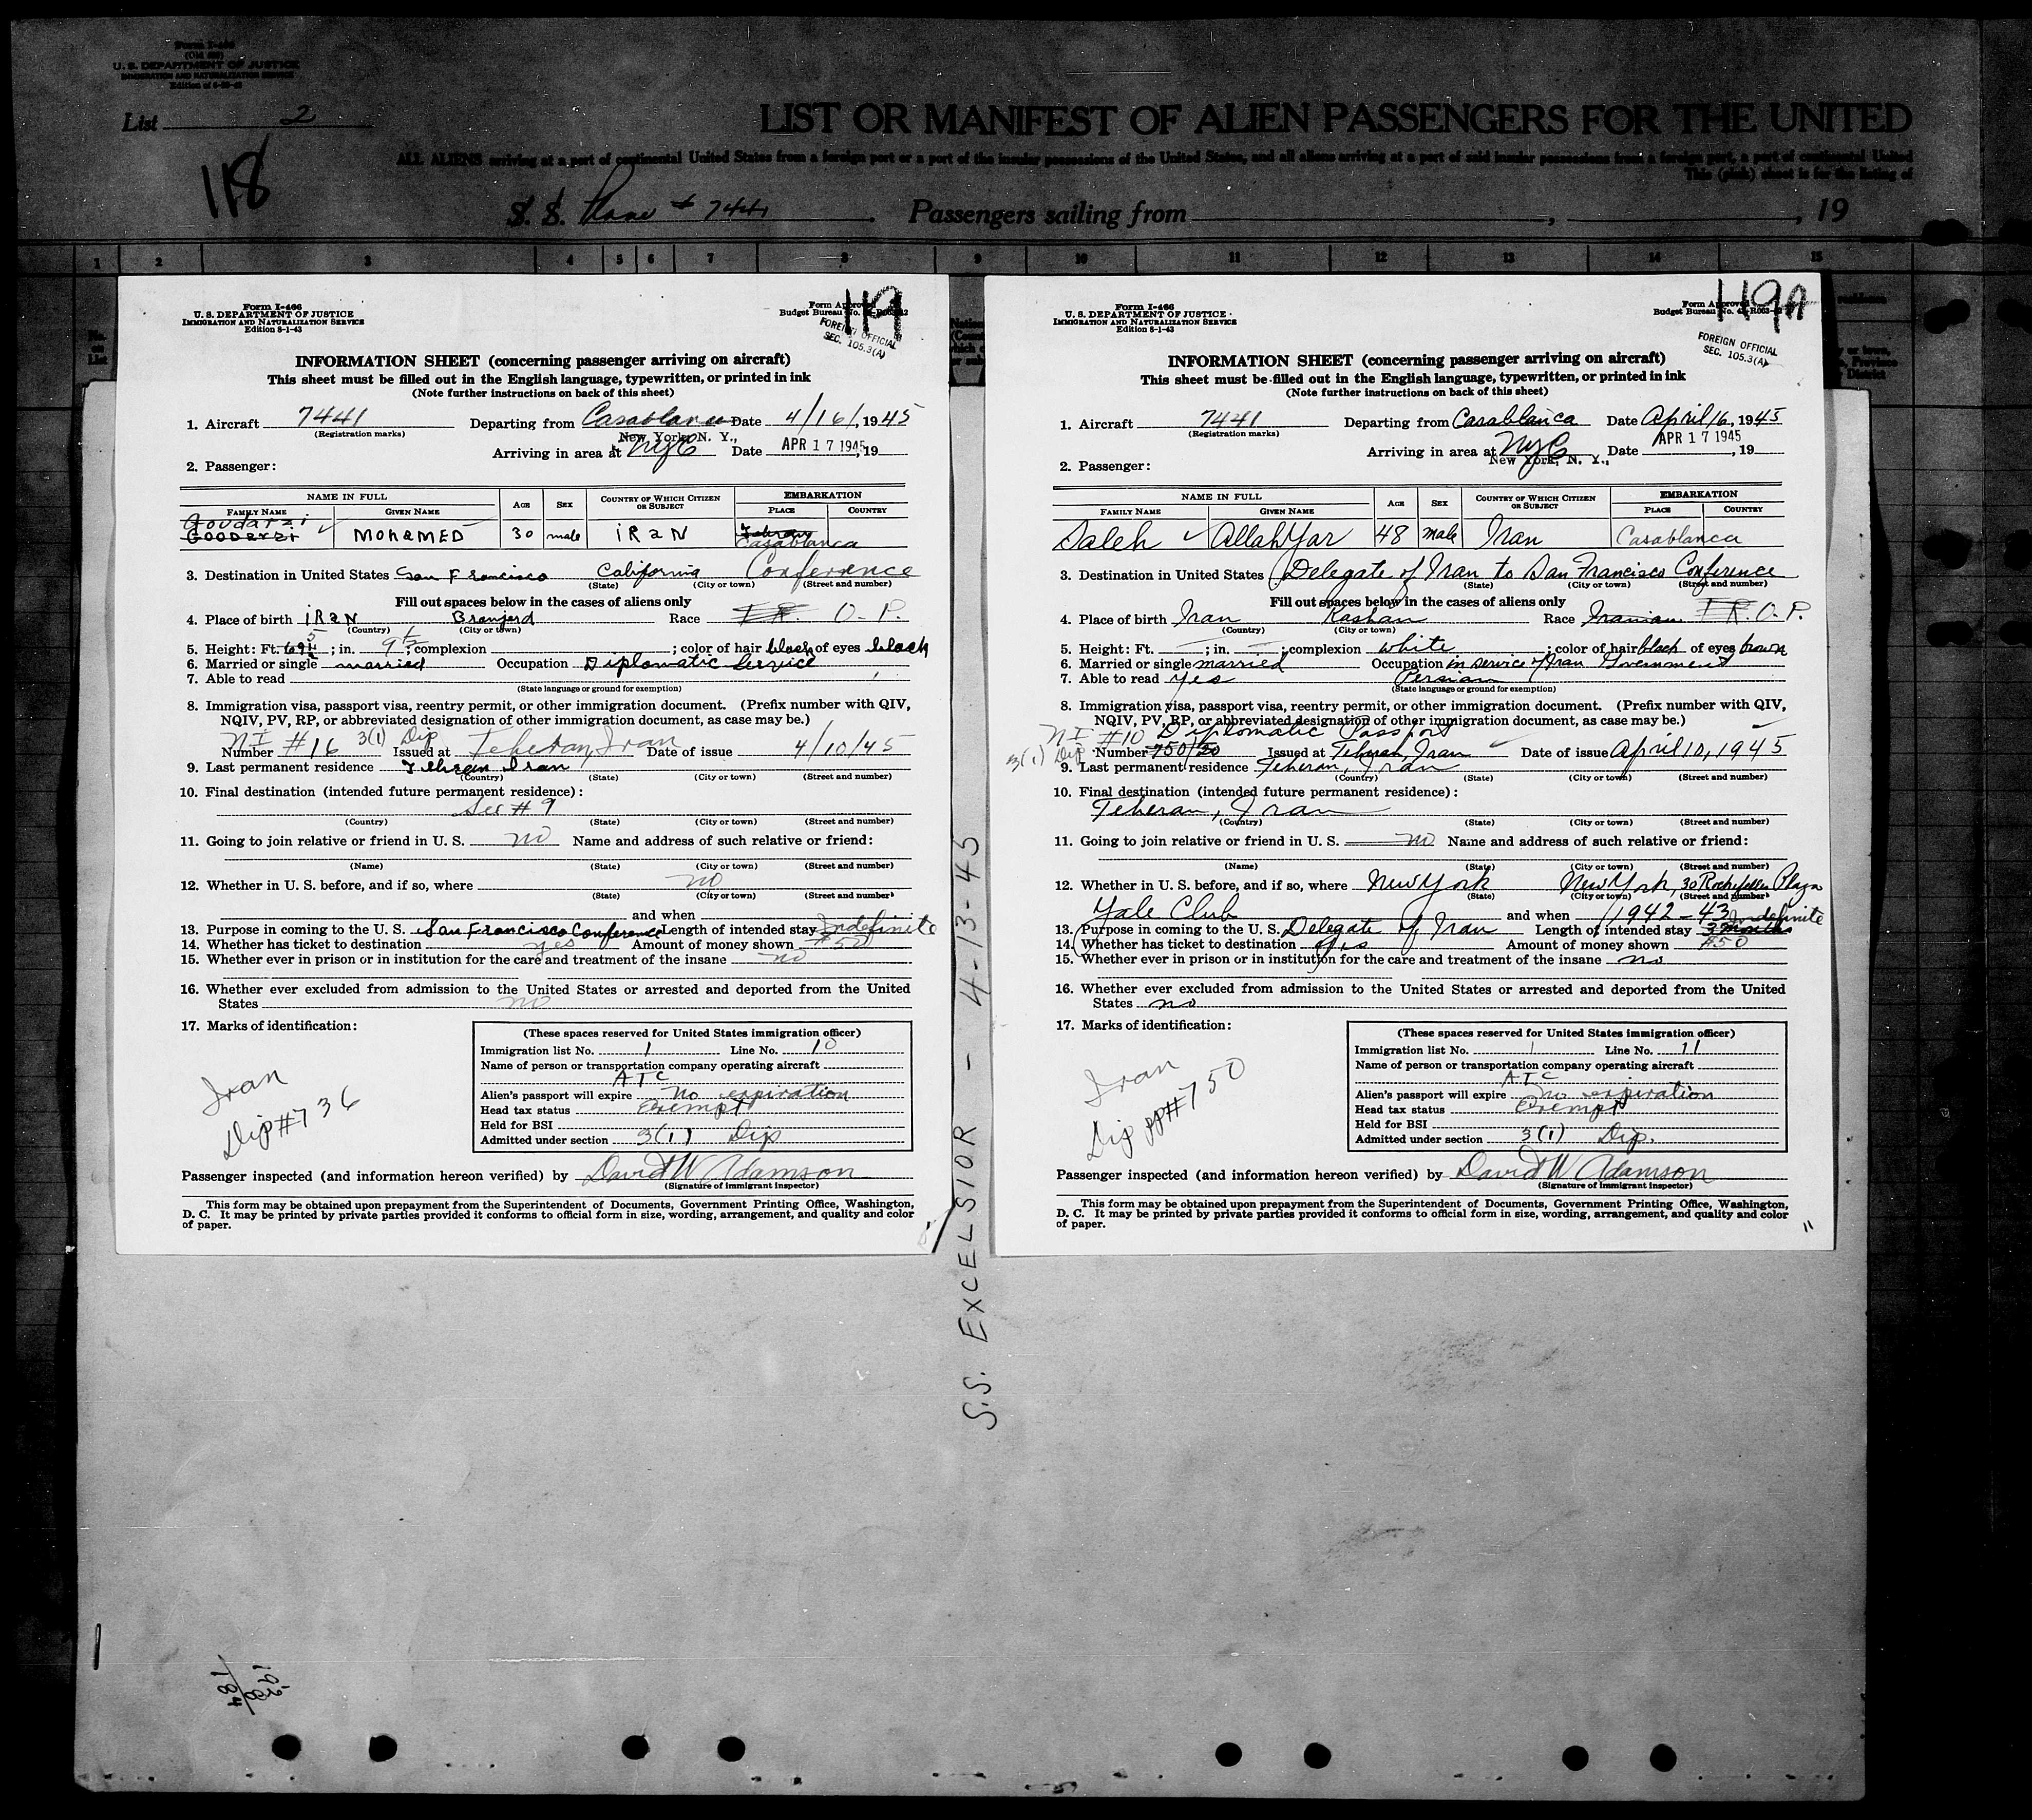 Form I-466
U. S. DEPARTMENT OF JUSTICE
IMMIGRATION AND NATURALIZATION SERVICE
List 2
LIST OR MANIFEST OF ALIEN PASSENGERS FOR THE UNITED
118
ALL ALIENS arriving at a port of continental United States from a foreign port or a port of the insular possessions of the United States, and all aliens arriving at a port of said insular possessions from a foreign port, a port of continental United
This (pink) sheet is for the listing of
S. S. Plane # 7441 Passengers sailing from , , 19
1 2 3 4 5 6 7 8 9 10 11 12 13 14 15
No. on List
Form I-466
U. S. DEPARTMENT OF JUSTICE
IMMIGRATION AND NATURALIZATION SERVICE
Edition 8-1-43
Form Approved
Budget Bureau No.
119
FOREIGN OFFICIAL
SEC. 105.3(A)
INFORMATION SHEET (concerning passenger arriving on aircraft)
This sheet must be filled out in the English language, typewritten, or printed in ink
(Note further instructions on back of this sheet)
1. Aircraft 7441 Departing from Casablanca Date 4/16/, 1945
(Registration marks)
New York, N. Y.,
Arriving in area at NYC Date APR 17 1945, 19
2. Passenger:
NAME IN FULL AGE SEX COUNTRY OF WHICH CITIZEN OR SUBJECT EMBARKATION
FAMILY NAME GIVEN NAME PLACE COUNTRY
Goudarzi
GOODARZI ✓ MOHAMED 30 male IRAN Tehran
Casablanca
3. Destination in United States San Francisco California Conference
(State) (City or town) (Street and number)
Fill out spaces below in the cases of aliens only
4. Place of birth IRAN Branjerd Race I.R. O.P.
(Country) (City or town)
5. Height: Ft. 5 ; in. 9 1/2 ; complexion ; color of hair black of eyes black
6. Married or single married Occupation Diplomatic Service
7. Able to read
(State language or ground for exemption)
8. Immigration visa, passport visa, reentry permit, or other immigration document. (Prefix number with QIV,
NQIV, PV, RP, or abbreviated designation of other immigration document, as case may be.)
NI #16 3(1) Dip
Number Issued at Teheran, Iran Date of issue 4/10/45
9. Last permanent residence Tehran Iran
(Country) (State) (City or town) (Street and number)
10. Final destination (intended future permanent residence):
See # 9
(Country) (State) (City or town) (Street and number)
11. Going to join relative or friend in U. S. no Name and address of such relative or friend:
(Name) (State) (City or town) (Street and number)
12. Whether in U. S. before, and if so, where no
(State) (City or town) (Street and number)
and when
13. Purpose in coming to the U. S. San Francisco Conference Length of intended stay Indefinite
14. Whether has ticket to destination yes Amount of money shown $50
15. Whether ever in prison or in institution for the care and treatment of the insane no
16. Whether ever excluded from admission to the United States or arrested and deported from the United
States no
17. Marks of identification:
Iran
Dip #736
(These spaces reserved for United States immigration officer)
Immigration list No. 1 Line No. 10
Name of person or transportation company operating aircraft
ATC
Alien's passport will expire no expiration
Head tax status Exempt
Held for BSI
Admitted under section 3(1) Dip
Passenger inspected (and information hereon verified) by David W Adamson
(Signature of immigrant inspector)
This form may be obtained upon prepayment from the Superintendent of Documents, Government Printing Office, Washington,
D. C. It may be printed by private parties provided it conforms to official form in size, wording, arrangement, and quality and color
of paper.
S.S. EXCELSIOR - 4-13-45
Form I-466
U. S. DEPARTMENT OF JUSTICE
IMMIGRATION AND NATURALIZATION SERVICE
Edition 8-1-43
Form Approved
Budget Bureau No.
119A
FOREIGN OFFICIAL
SEC. 105.3(A)
INFORMATION SHEET (concerning passenger arriving on aircraft)
This sheet must be filled out in the English language, typewritten, or printed in ink
(Note further instructions on back of this sheet)
1. Aircraft 7441 Departing from Casablanca Date April 16, 1945
(Registration marks)
Arriving in area at NYC Date APR 17 1945, 19
New York, N. Y.,
2. Passenger:
NAME IN FULL AGE SEX COUNTRY OF WHICH CITIZEN OR SUBJECT EMBARKATION
FAMILY NAME GIVEN NAME PLACE COUNTRY
Saleh ✓ AllahYar 48 male Iran Casablanca
3. Destination in United States Delegate of Iran to San Francisco Conference
(State) (City or town) (Street and number)
Fill out spaces below in the cases of aliens only
4. Place of birth Iran Kashan Race Iranian I.R. O.P.
(Country) (City or town)
5. Height: Ft. ; in. ; complexion white ; color of hair black of eyes brown
6. Married or single married Occupation in service of Iran Government
7. Able to read yes Persian
(State language or ground for exemption)
8. Immigration visa, passport visa, reentry permit, or other immigration document. (Prefix number with QIV,
NQIV, PV, RP, or abbreviated designation of other immigration document, as case may be.)
NI #10 Diplomatic Passport
3(1) Dip Number 750/20 Issued at Teheran, Iran Date of issue April 10, 1945
9. Last permanent residence Teheran, Iran
(Country) (State) (City or town) (Street and number)
10. Final destination (intended future permanent residence):
Teheran, Iran
(Country) (State) (City or town) (Street and number)
11. Going to join relative or friend in U. S. no Name and address of such relative or friend:
(Name) (State) (City or town) (Street and number)
12. Whether in U. S. before, and if so, where New York New York, 30 Rockefeller Plaza
(State) (City or town) (Street and number)
Yale Club and when 1942-43
13. Purpose in coming to the U. S. Delegate of Iran Length of intended stay 3 months Indefinite
14. Whether has ticket to destination yes Amount of money shown $50
15. Whether ever in prison or in institution for the care and treatment of the insane no
16. Whether ever excluded from admission to the United States or arrested and deported from the United
States no
17. Marks of identification:
Iran
Dip pp#750
(These spaces reserved for United States immigration officer)
Immigration list No. 1 Line No. 11
Name of person or transportation company operating aircraft
ATC
Alien's passport will expire no expiration
Head tax status Exempt
Held for BSI
Admitted under section 3(1) Dip.
Passenger inspected (and information hereon verified) by David W Adamson
(Signature of immigrant inspector)
This form may be obtained upon prepayment from the Superintendent of Documents, Government Printing Office, Washington,
D. C. It may be printed by private parties provided it conforms to official form in size, wording, arrangement, and quality and color
of paper.
11